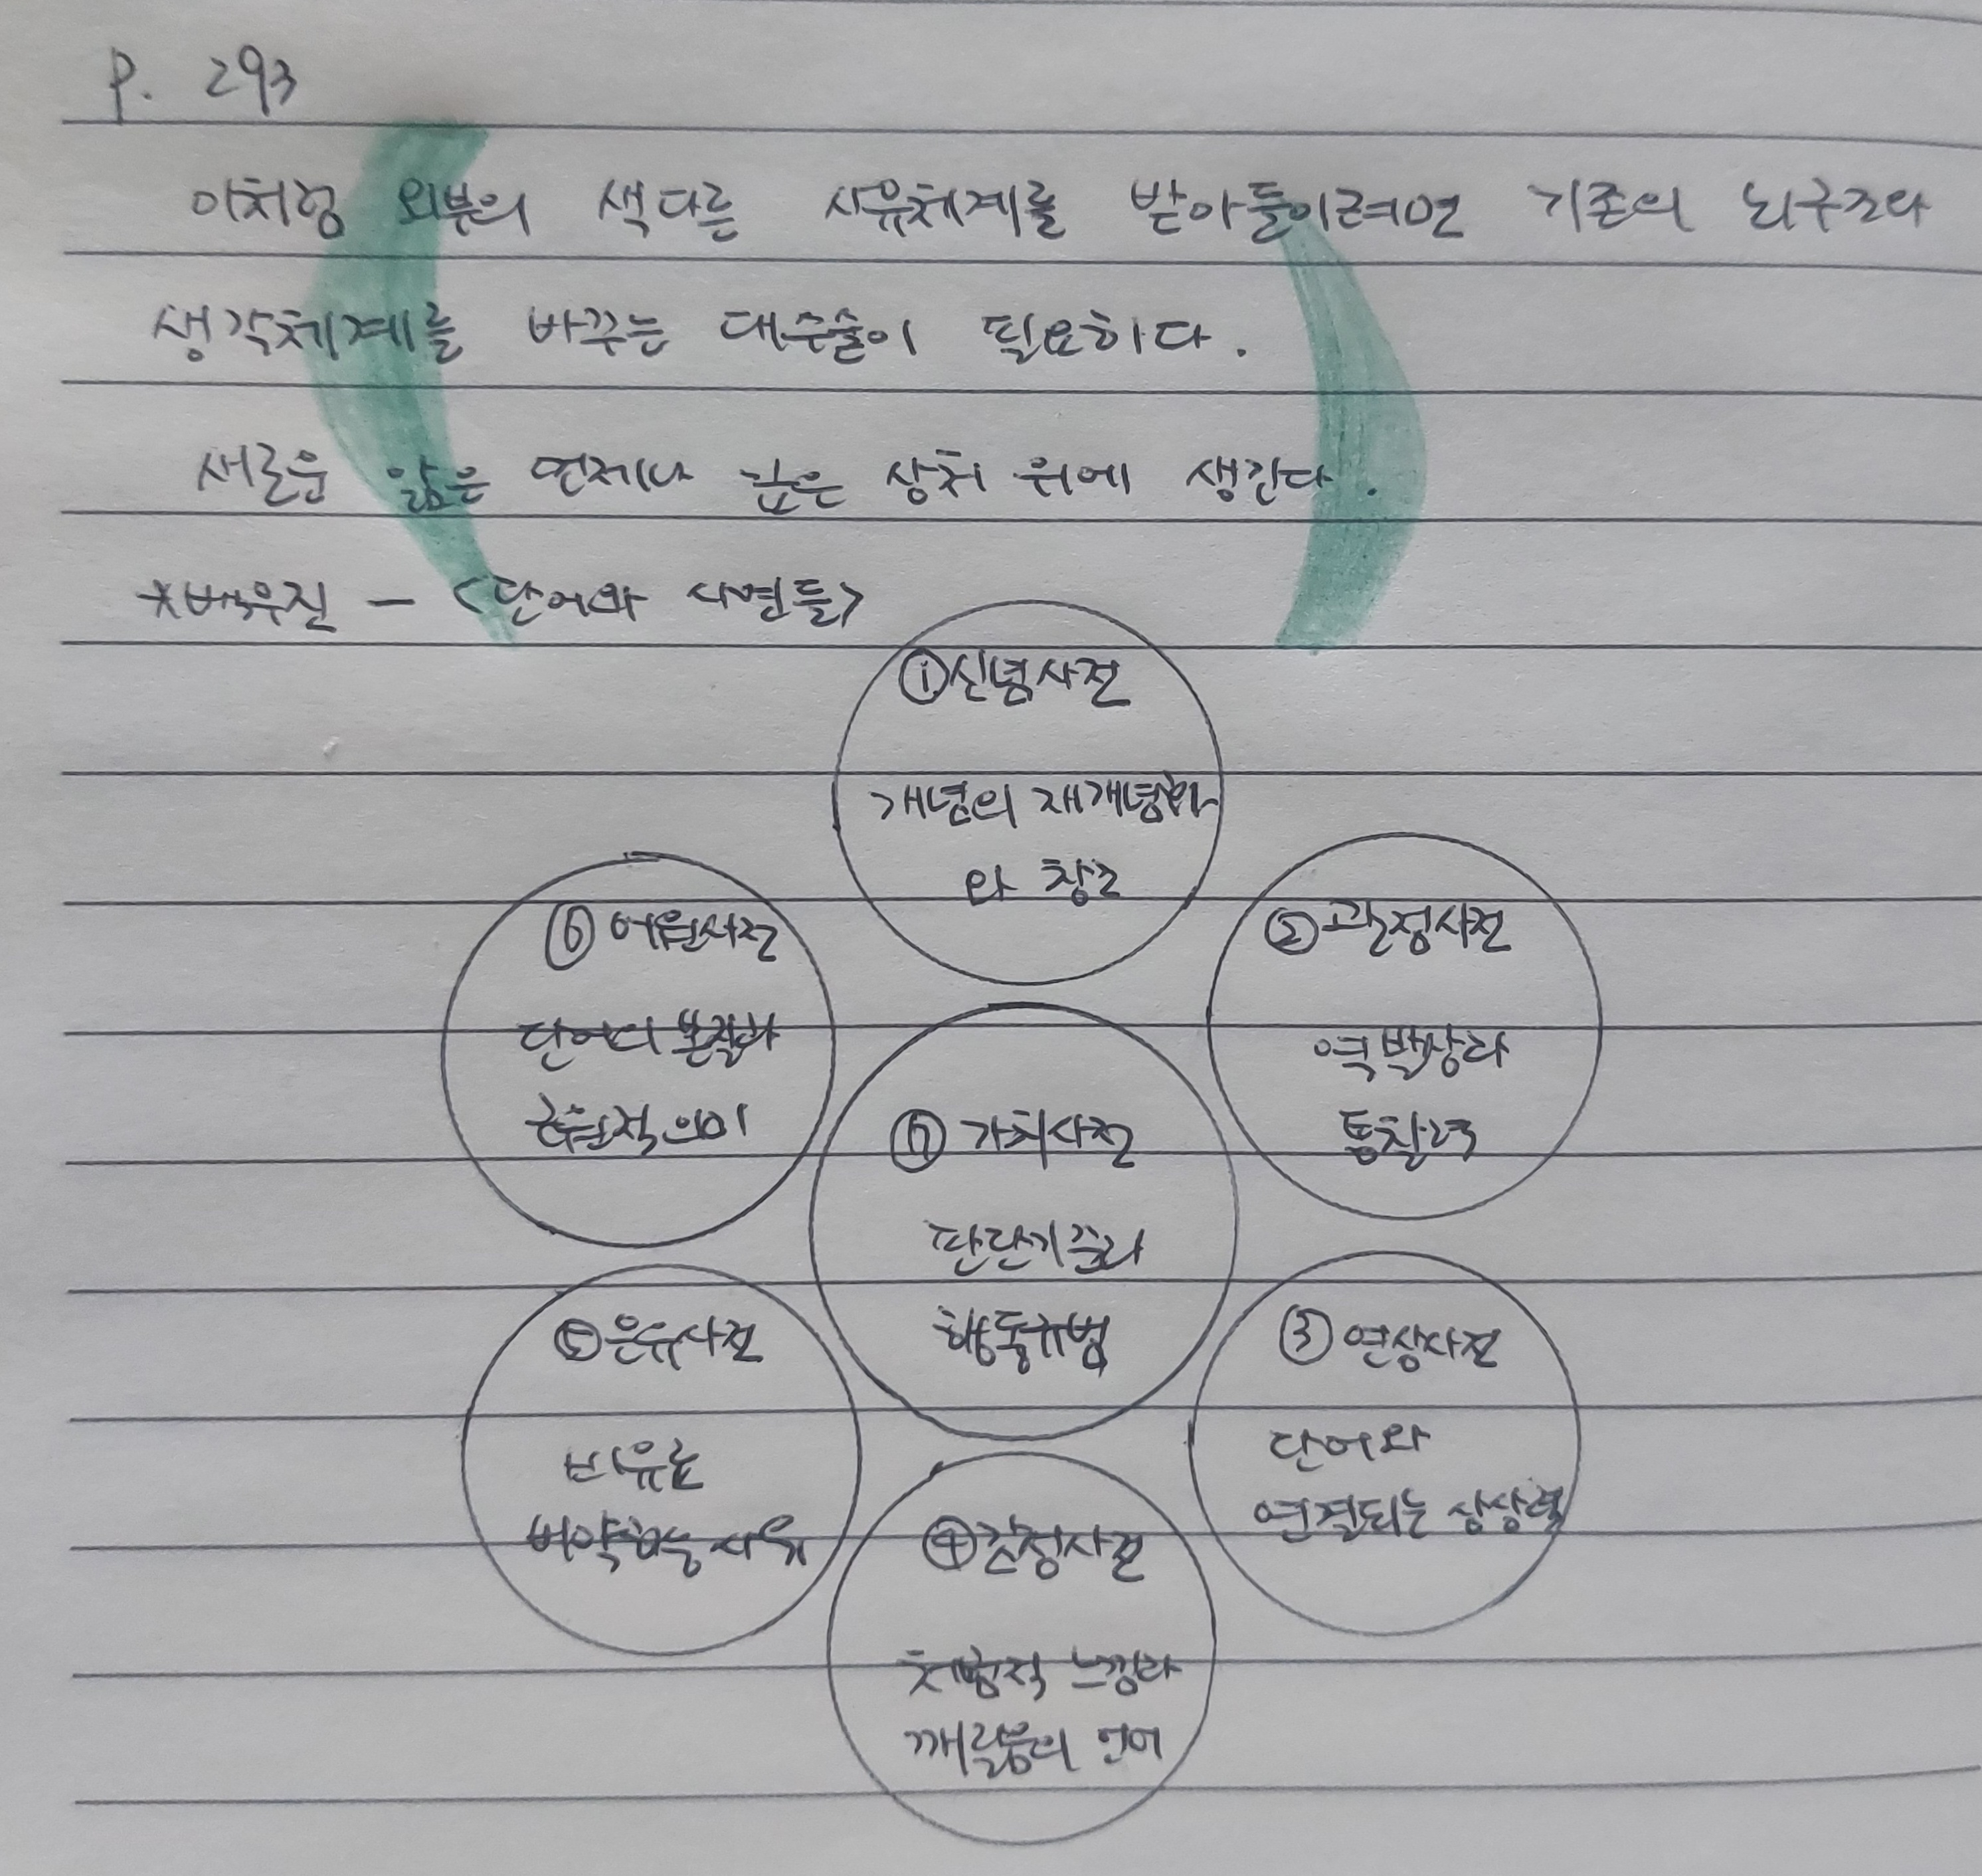 P. 293
이처럼 외부의 색다른 사유체계를 받아들이려면 기존의 뇌구조와
생각체계를 바꾸는 대수술이 필요하다.
새로운 앎은 언제나 깊은 상처 위에 생긴다.
*백우진 - <단어의 사연들>
①신념사전
개념의 재개념화
와 창조
②관점사전
역발상과
통찰력
③ 연상사전
단어와
연결되는 상상력
④감정사전
체험적 느낌과
깨달음의 언어
⑤은유사전
비유로
비약하는 사유
⑥ 어원사전
단어의 본질과
근원적 의미
⑦ 가치사전
판단기준과
행동규범